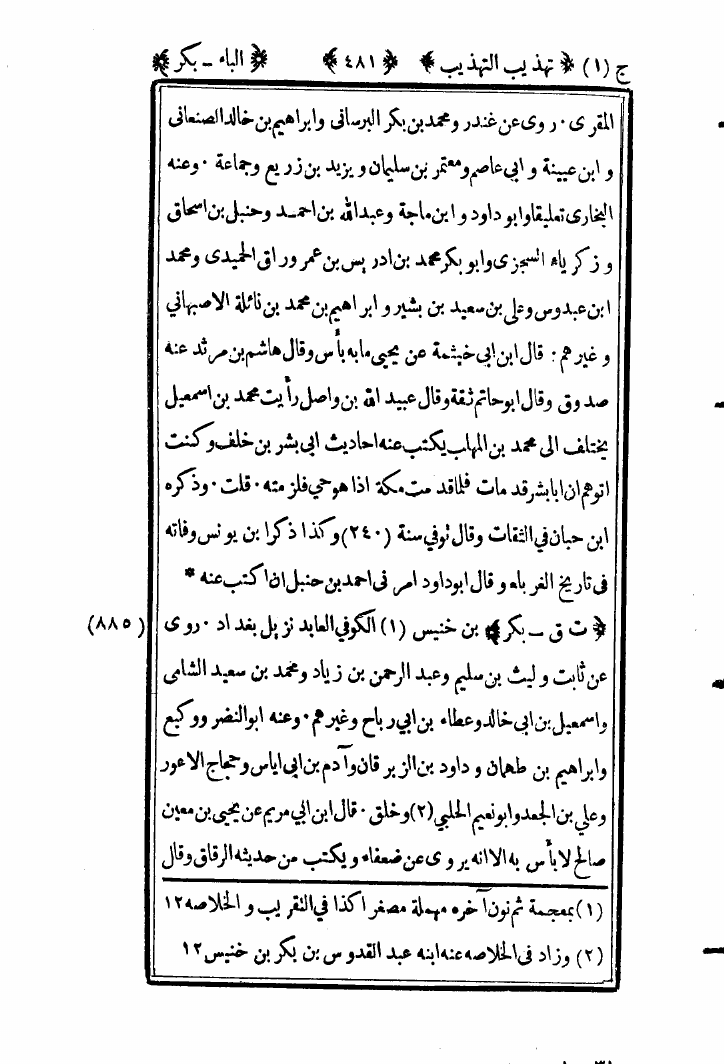 ج (١) ﴿ تهذيب التهذيب ﴾ ﴿ ٤٨١ ﴾ ﴿ الباء ـ بكر ﴾
المقرى · روى عن غندر ومحمد بن بكر البرسانى وابراهيم بن خالد الصنعانى
و ابن عيينة و ابي عاصم ومعتمر بن سليمان و يزيد بن زريع وجماعة · وعنه
البخارى تعليقا وابو داود و ابن ماجة وعبد الله بن احمد وحنبل بن اسحاق
و زكرياء السجزى وابو بكر محمد بن ادريس بن عمر وراق الحميدى ومحمد
ابن عبدوس وعلى بن سعيد بن بشير و ابراهيم بن محمد بن نائلة الاصبهاني
و غيرهم : قال ابن ابى خيثمة عن يحيى مابه بأس وقال هاشم بن مرثد عنه
صدوق وقال ابو حاتم ثقة وقال عبيد الله بن واصل رأيت محمد بن اسمعيل
يختلف الى محمد بن المهلب يكتب عنه احاديث ابى بشر بن خلف وكنت
اتوهم ان ابا بشر قد مات فلما قدمت مكة اذا هو حي فلزمته · قلت · وذكره
ابن حبان في الثقات وقال توفي سنة (٢٤٠) وكذا ذكر ابن يونس وفاته
فى تاريخ الغرباء و قال ابو داود امرنى احمد بن حنبل ان اكتب عنه *
﴿ ت ق ـ بكر ﴾ بن خنيس (١) الكوفي العابد نزيل بغداد · روى (٨٨٥)
عن ثابت و ليث بن سليم وعبد الرحمن بن زياد ومحمد بن سعيد الشامى
واسمعيل بن ابى خالد وعطاء بن ابي رباح وغيرهم · وعنه ابو النضر ووكيع
وابراهيم بن طهمان و داود بن الزبرقان وآدم بن ابى اياس وحجاج الاعور
وعلي بن الجعد وابو نعيم الحلبي (٢) وخلق · قال ابن ابي مريم عن يحيى بن معين
صالح لا بأس به الا انه يروى عن ضعفاء و يكتب من حديثه الرقاق وقال
(١) بمعجمة ثم نون آخره مهملة مصغرا كذا في التقريب و الخلاصه ١٢
(٢) وزاد فى الخلاصه عنه ابنه عبد القدوس بن بكر بن خنيس ١٢